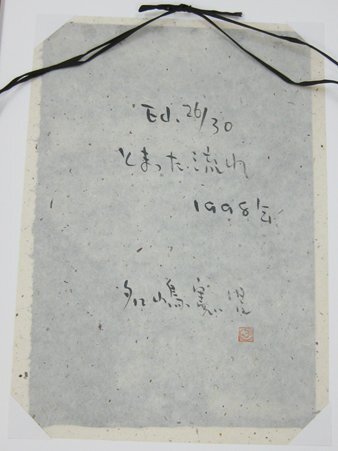 Ed. 26/30
とまった流れ
1998年
名嶋憲児